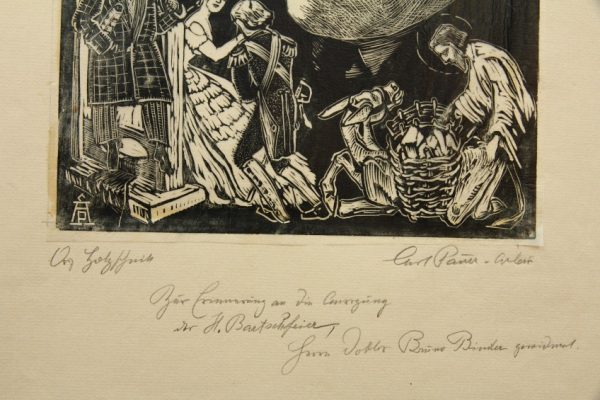 Org Holzschnitt
Curt Pauer-Arlau
Zur Erinnerung an die Anregung
der H. Bartschfeier,
Herrn Doktor Bruno Binder gewidmet.